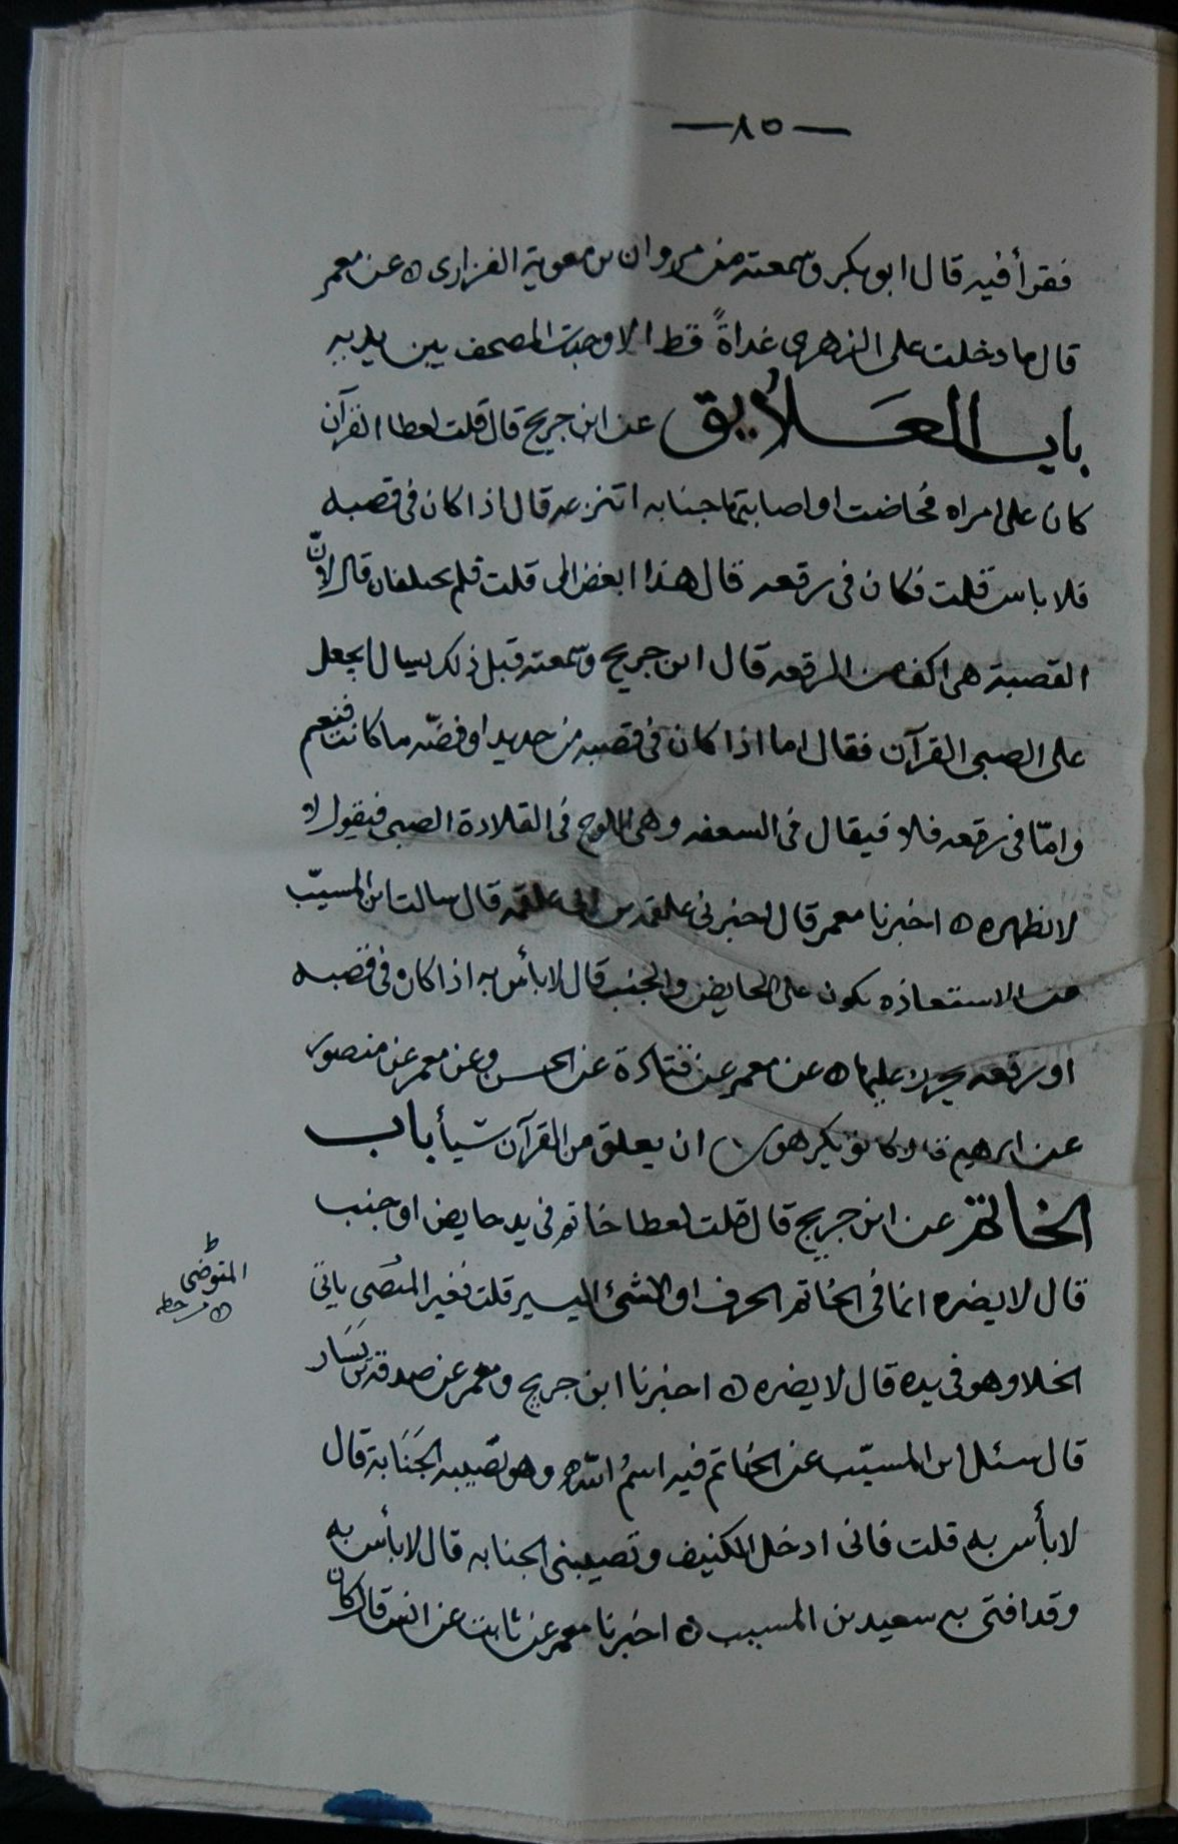 — ٨٥ —
فقرأ فيه قال ابو بكر وسمعته من مروان بن معوية الفزارى ٥ عن معمر
قال ما دخلت على الزهرى غداةً قط الا وجدت المصحف بين يديه
باب العَلايق عن ابن جريج قال قلت لعطا القرآن
كان على امراه فحاضت او اصابتها جنابه اتنزعه قال اذا كان فى قصبه
فلا باس قلت فكان فى رقعه قال هذا ابغض الى قلت فلم يختلفان قال لانّ
القصبة هى اكف من الرقعه قال ابن جريج وسمعته قبل ذلك يسال ايجعل
على الصبى القرآن فقال اما اذا كان فى قصبه من حديد او فضّه ما كانت فنعم
وامّا فى رقعه فلا فيقال فى السعفه وهى اللوح فى القلادة الصبى فيقول لا
لا نظهره ٥ اخبرنا معمر قال اخبرنى علقمه بن ابى علقمه قال سالت ابن المسيّب
عن الاستعاذه يكون على الحايض والجنب قال لا بأس به اذا كان فى قصبه
او رقعه يجوز عليها ٥ عن معمر عن قتادة عن الحسن وعن معمر عن منصور
عن ابرهيم قال كانو يكرهون ان يعلق من القرآن شيأ باب
الخاتم عن ابن جريج قال قلت لعطا خاتم فى يد حايض او جنب
قال لا يضره انما فى الخاتم الحرف او الشئ اليسير قلت فغير المتضى ياتى
المتوضى
الخلا وهو فى يده قال لا يضره ٥ اخبرنا ابن جريج ومعمر عن صدقة بن يَسَار
قال سئل ابن المسيّب عن الخاتم فيه اسمُ الله وهو تصيبه الجَنَابة قال
لا بأس به قلت فانى ادخل الكنيف وتصيبنى الجنابه قال لا بأس به
وقد افتى به سعيد بن المسيب ٥ اخبرنا معمر عن ثابت عن انس قال كان